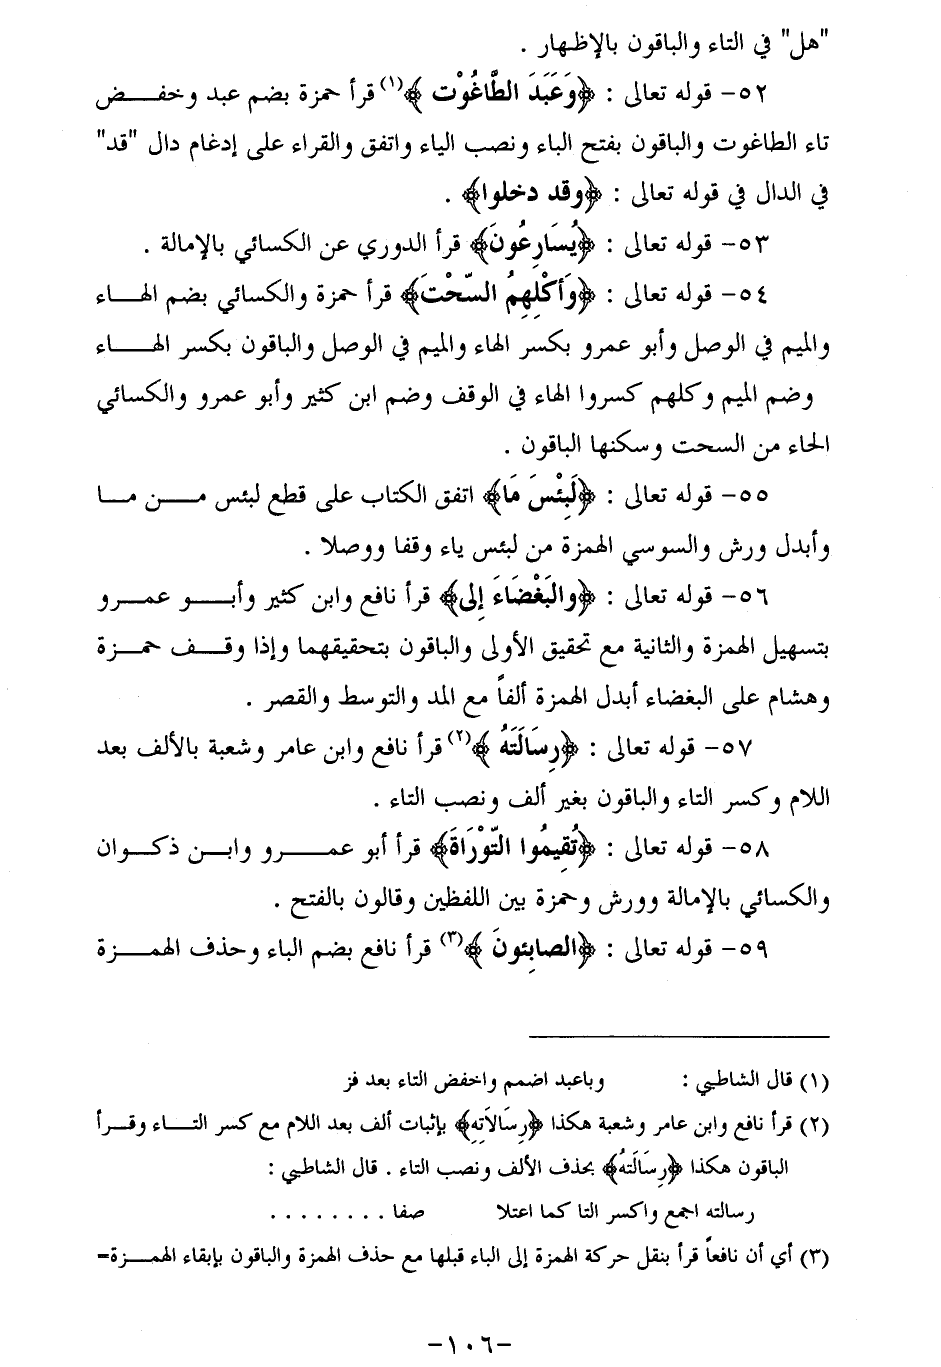 "هل" في التاء والباقون بالإظهار .
٥٢- قوله تعالى : ﴿وَعَبَدَ الطَّاغُوْت﴾(١) قرأ حمزة بضم عبد وخفض
تاء الطاغوت والباقون بفتح الباء ونصب الياء واتفق والقراء على إدغام دال "قد"
في الدال في قوله تعالى : ﴿وقد دخلوا﴾ .
٥٣- قوله تعالى : ﴿يُسَارِعُونَ﴾ قرأ الدوري عن الكسائي بالإمالة .
٥٤- قوله تعالى : ﴿وَأَكْلِهِمُ السّحْتَ﴾ قرأ حمزة والكسائي بضم الهاء
والميم في الوصل وأبو عمرو بكسر الهاء والميم في الوصل والباقون بكسر الهاء
وضم الميم وكلهم كسروا الهاء في الوقف وضم ابن كثير وأبو عمرو والكسائي
الحاء من السحت وسكنها الباقون .
٥٥- قوله تعالى : ﴿لَبِئْسَ مَا﴾ اتفق الكتاب على قطع لبئس من ما
وأبدل ورش والسوسي الهمزة من لبئس ياء وقفا ووصلا .
٥٦- قوله تعالى : ﴿والبَغْضَاءَ إِلى﴾ قرأ نافع وابن كثير وأبو عمرو
بتسهيل الهمزة والثانية مع تحقيق الأولى والباقون بتحقيقهما وإذا وقف حمزة
وهشام على البغضاء أبدل الهمزة ألفاً مع المد والتوسط والقصر .
٥٧- قوله تعالى : ﴿رِسَالَتَهُ﴾(٢) قرأ نافع وابن عامر وشعبة بالألف بعد
اللام وكسر التاء والباقون بغير ألف ونصب التاء .
٥٨- قوله تعالى : ﴿تُقِيمُوا التّوْرَاةَ﴾ قرأ أبو عمرو وابن ذكوان
والكسائي بالإمالة وورش وحمزة بين اللفظين وقالون بالفتح .
٥٩- قوله تعالى : ﴿الصابِئونَ﴾(٣) قرأ نافع بضم الباء وحذف الهمزة
(١) قال الشاطبي : وباعبد اضمم واخفض التاء بعد فز
(٢) قرأ نافع وابن عامر وشعبة هكذا ﴿رِسَالَاتِهِ﴾ بإثبات ألف بعد اللام مع كسر التاء وقرأ
الباقون هكذا ﴿رِسَالَتَهُ﴾ بحذف الألف ونصب التاء . قال الشاطبي :
رسالته اجمع واكسر التا كما اعتلا صفا . . . . . . . .
(٣) أي أن نافعاً قرأ بنقل حركة الهمزة إلى الباء قبلها مع حذف الهمزة والباقون بإبقاء الهمزة=
-١٠٦-